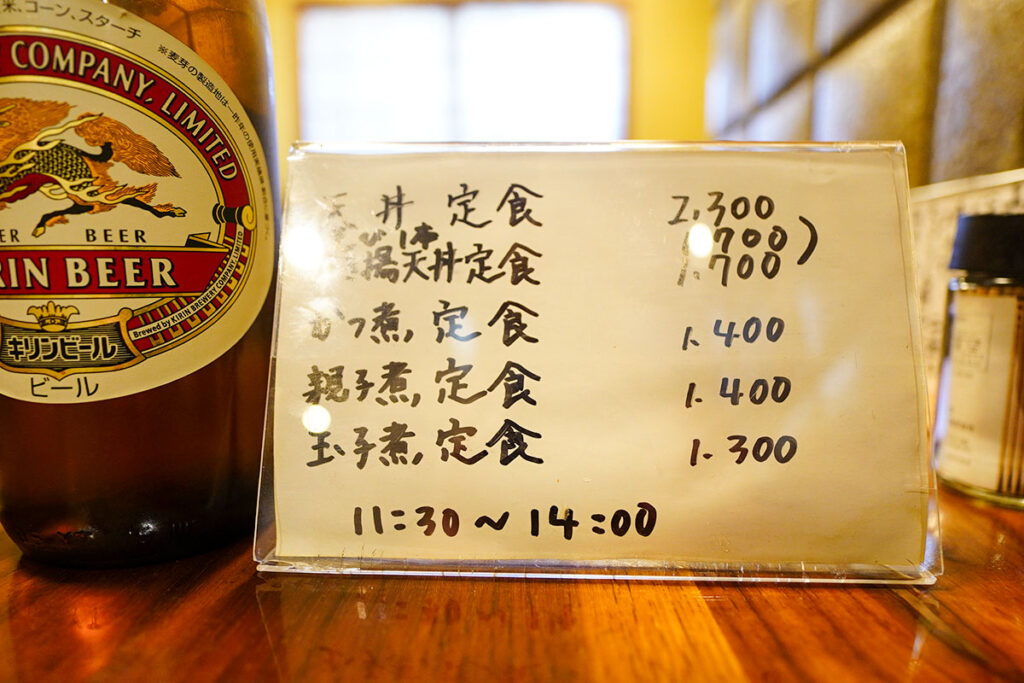 米、コーン、スターチ
※麦芽の製造地は一昨年の使用実績
COMPANY, LIMITED
BEER
RIN BEER
Brewed by KIRIN BREWERY COMPANY, LIMITED
キリンビール
ビール
天丼定食 2,300
1,700)
揚天丼定食 1.700
かつ煮,定食 1.400
親子煮,定食 1.400
玉子煮,定食 1.300
11:30~14:00